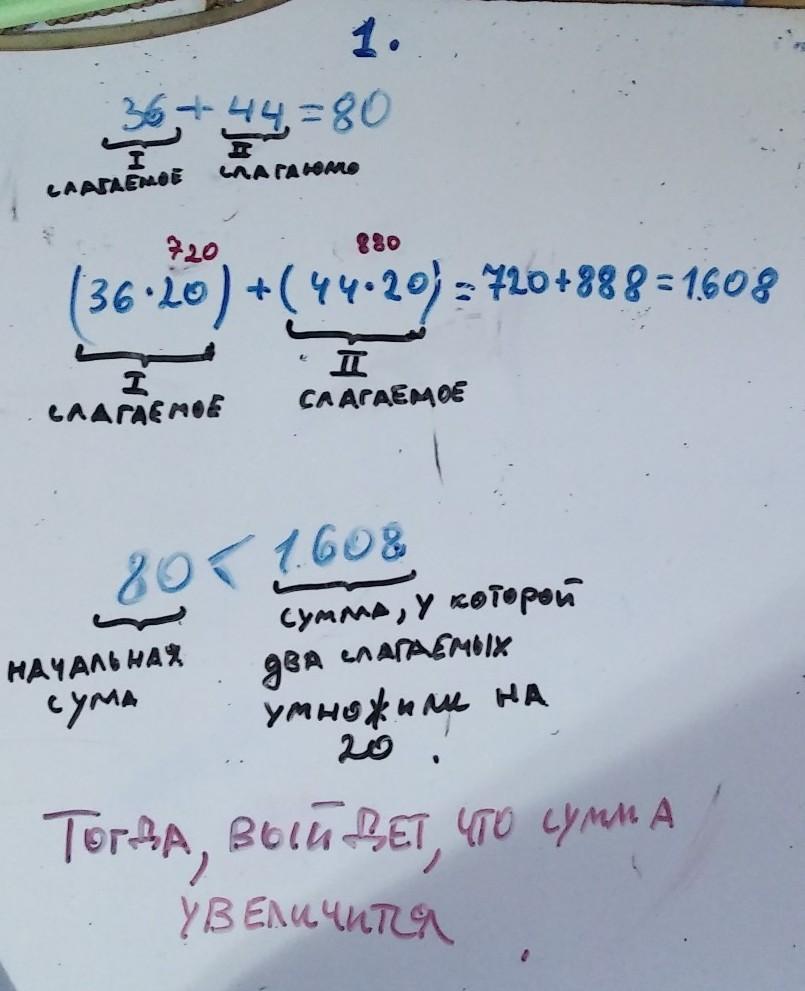 1.
36 + 44 = 80
I II
СЛАГАЕМОЕ СЛАГАЮМО
720 880
(36 · 20) + (44 · 20) = 720 + 888 = 1.608
I II
СЛАГАЕМОЕ СЛАГАЕМОЕ
80 < 1.608
НАЧАЛЬНАЯ СУМА
СУММА, У КОТОРОЙ
ДВА СЛАГАЕМЫХ
УМНОЖИЛИ НА
20.
ТОГДА, ВЫЙДЕТ, ЧТО СУММА
УВЕЛИЧИТСЯ.